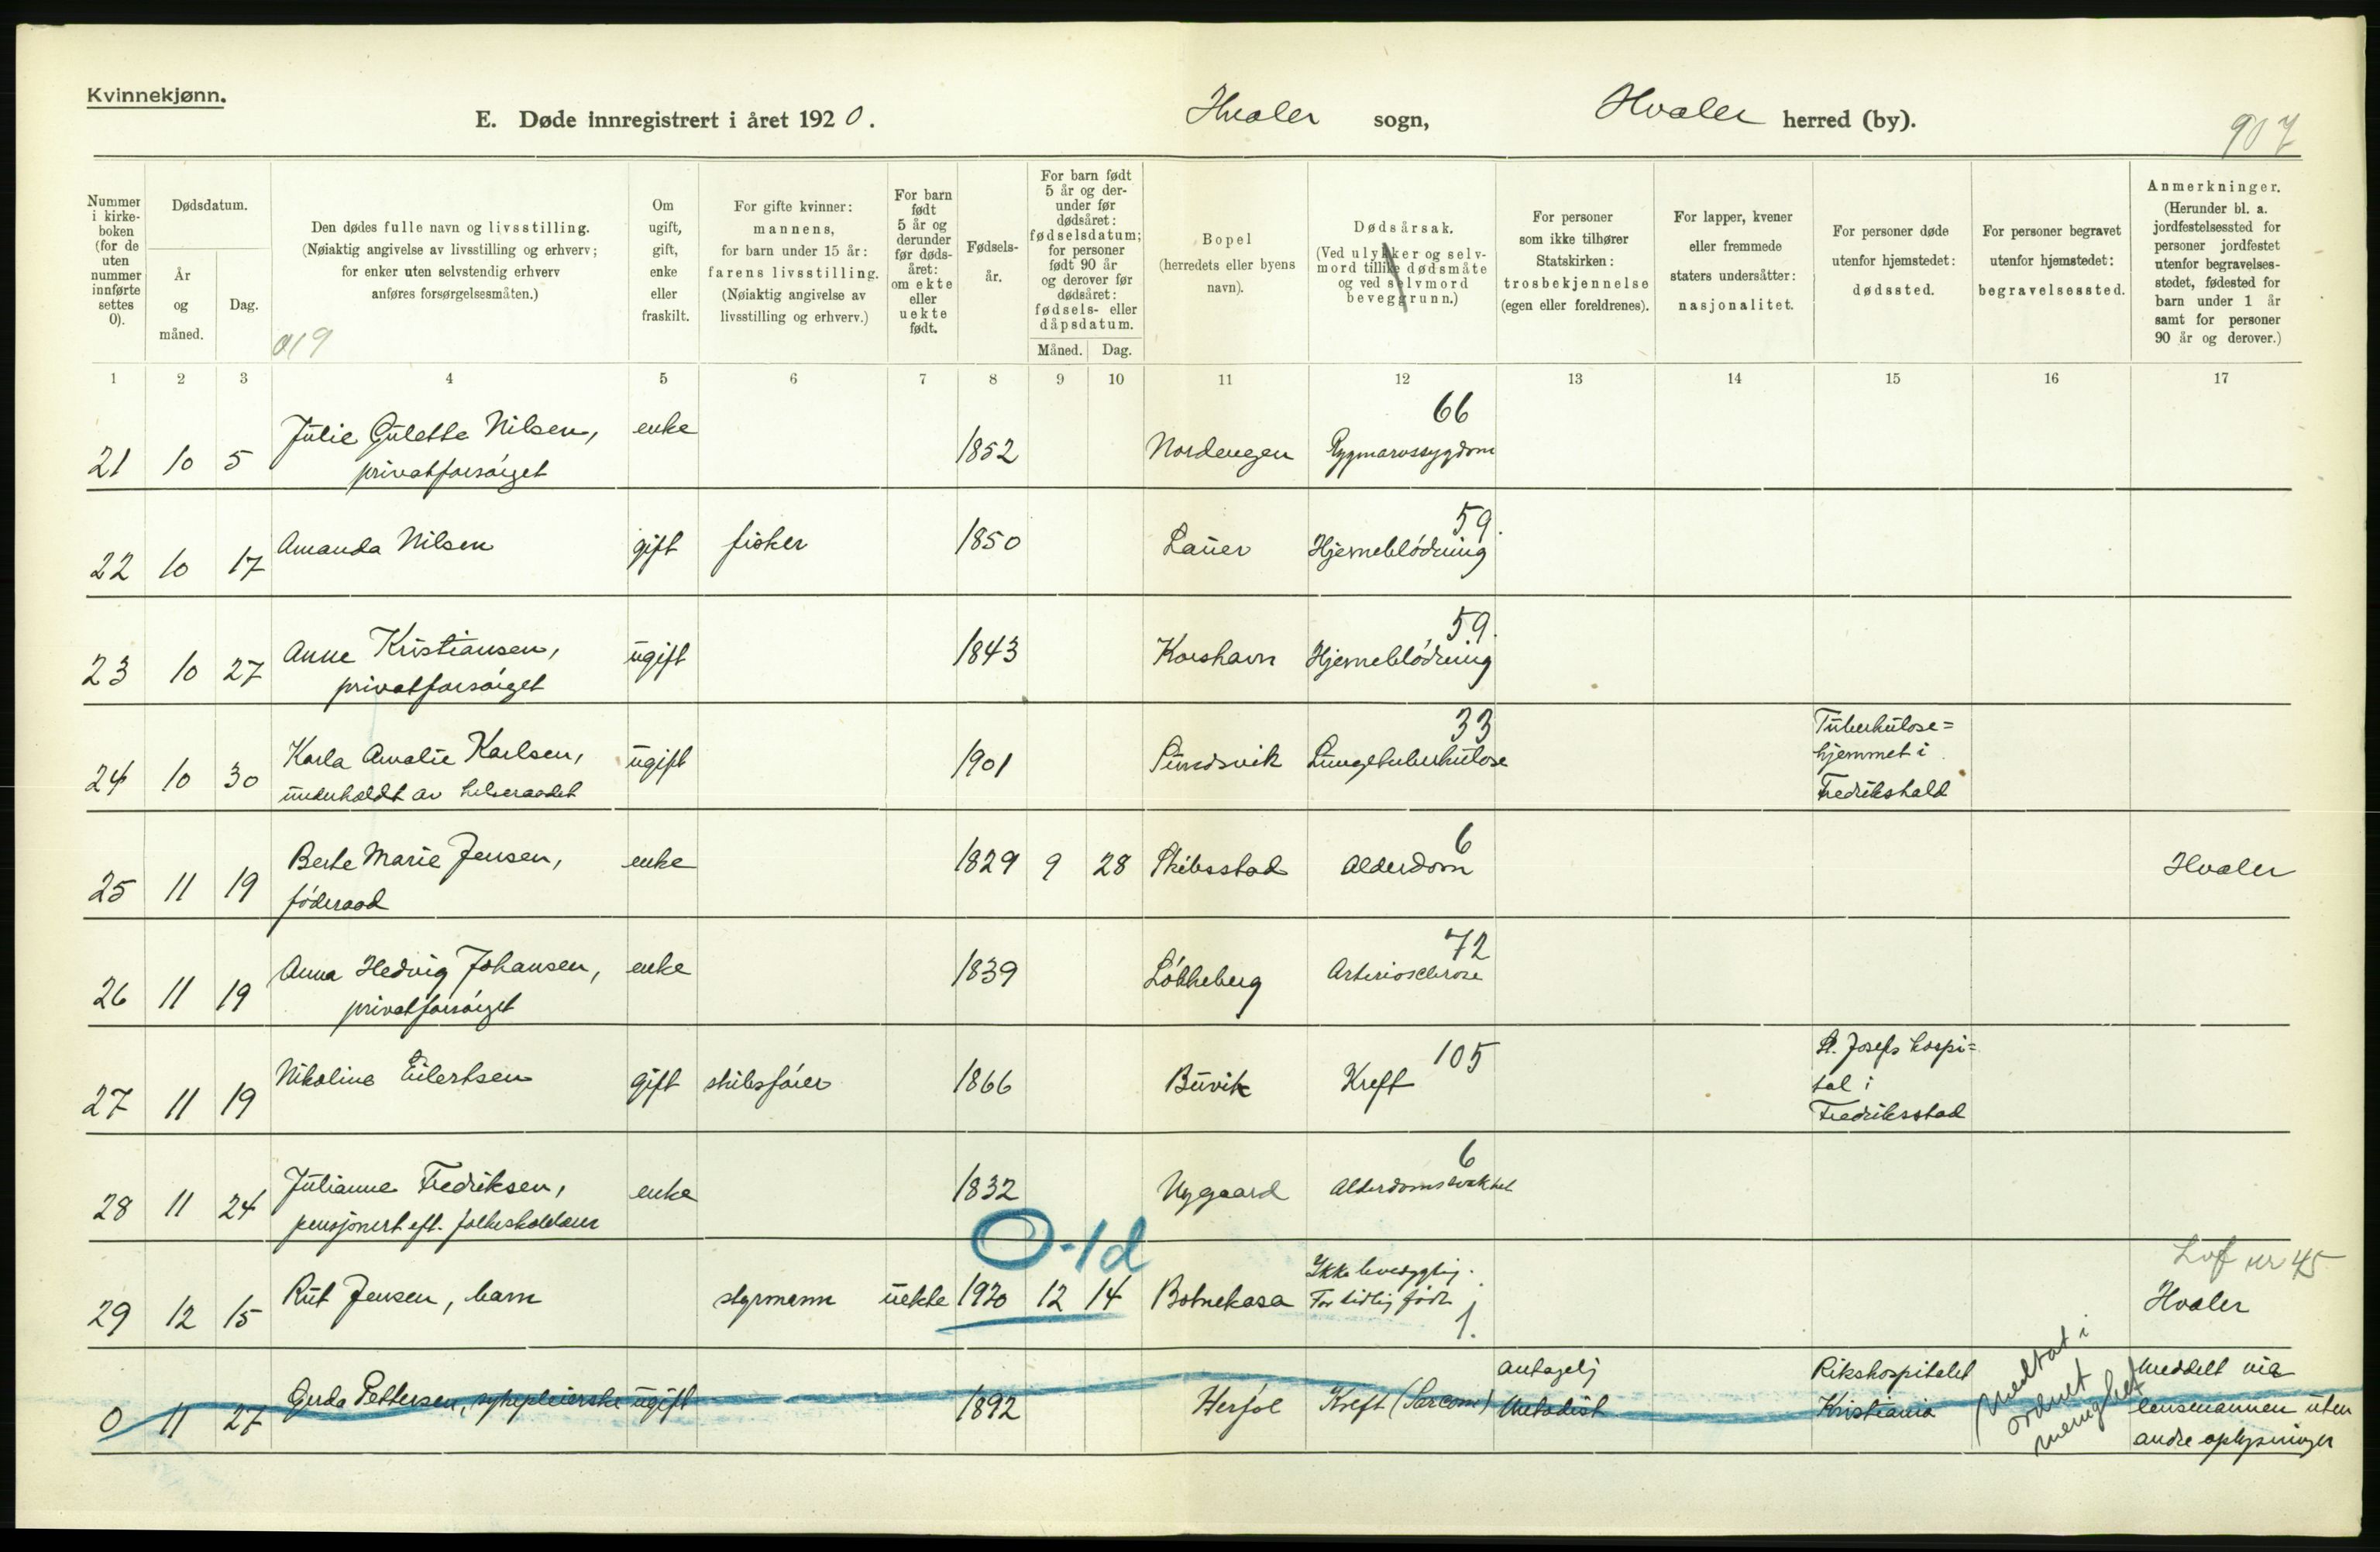 Kvinnekjønn.
E. Døde innregistrert i året 1920. Hvaler sogn, Hvaler herred (by).
907
Nummer i kirke-boken (for de uten nummer innførte settes 0).
Dødsdatum.
År og måned.
Dag.
Den dødes fulle navn og livsstilling.
(Nøiaktig angivelse av livsstilling og erhverv;
for enker uten selvstendig erhverv
anføres forsørgelsesmåten.)
019
Om ugift, gift, enke eller fraskilt.
For gifte kvinner:
mannens,
for barn under 15 år:
farens livsstilling.
(Nøiaktig angivelse av
livsstilling og erhverv.)
For barn født 5 år og derunder før døds-året: om ekte eller uekte født.
Fødsels-år.
For barn født 5 år og der-under før dødsåret: fødselsdatum; for personer født 90 år og derover før dødsåret: fødsels- eller dåpsdatum.
Måned.
Dag.
Bopel
(herredets eller byens
navn).
Dødsårsak.
(Ved ulykker og selv-
mord tillike dødsmåte
og ved selvmord
beveggrunn.)
For personer
som ikke tilhører
Statskirken:
trosbekjennelse
(egen eller foreldrenes).
For lapper, kvener
eller fremmede
staters undersåtter:
nasjonalitet.
For personer døde
utenfor hjemstedet:
dødssted.
For personer begravet
utenfor hjemstedet:
begravelsessted.
Anmerkninger.
(Herunder bl. a.
jordfestelsessted for
personer jordfestet
utenfor begravelses-
stedet, fødested for
barn under 1 år
samt for personer
90 år og derover.)
1 2 3 4 5 6 7 8 9 10 11 12 13 14 15 16 17
66
21 10 5 Julie Gulette Nilsen, enke 1852 Nordengen Rygmarvssygdom
privatforsørget
59.
22 10 17 Amanda Nilsen gift fisker 1850 Lauer Hjerneblødning
59.
23 10 27 Anne Kristiansen, ugift 1843 Korshavn Hjerneblødning
privatforsørget
33
24 10 30 Karla Amalie Karlsen, ugift 1901 Sundsvik Lungetuberkulose Tuberkulose=
hjemmet i
underholdt av helseraadet Fredrikshald
6
25 11 19 Berte Marie Jensen, enke 1829 9 28 Skibsstad Alderdom Hvaler
føderaad
72
26 11 19 Anna Hedvig Johansen, enke 1839 Løkkeberg Arteriosclerose
privatforsørget
105
27 11 19 Nikoline Eilertsen gift skibsfører 1866 Buvik Kreft St. Josefs hospi=
tal i
Fredriksstad
6
28 11 24 Julianne Fredriksen, enke 1832 Nygaard Alderdomssvakhet
pensjonert eft. folkeskolelærer
0-1d
Lvf nr 45
29 12 15 Rut Jensen, barn styrmann uekte 1920 12 14 Botnekasa Ikke levedygtig.
For tidlig født Hvaler
1.
0 11 27 Gerda Pettersen, sykepleierske ugift 1892 Herføl Kreft (Sarcom) antagelig
Metodist Rikshospitalet
Kristiania
Medtat i
ordnet
menighet
Meddelt via
lensmannen uten
andre oplysninger